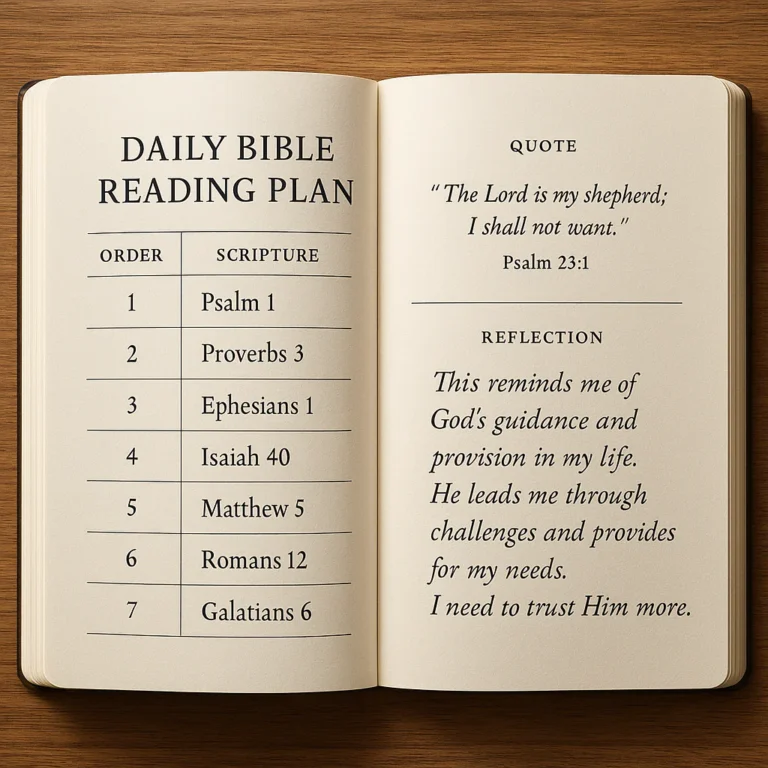 DAILY BIBLE
READING PLAN
ORDER SCRIPTURE
1 Psalm 1
2 Proverbs 3
3 Ephesians 1
4 Isaiah 40
5 Matthew 5
6 Romans 12
7 Galatians 6
QUOTE
“The Lord is my shepherd;
I shall not want.”
Psalm 23:1
REFLECTION
This reminds me of
God's guidance and
provision in my life.
He leads me through
challenges and provides
for my needs.
I need to trust Him more.